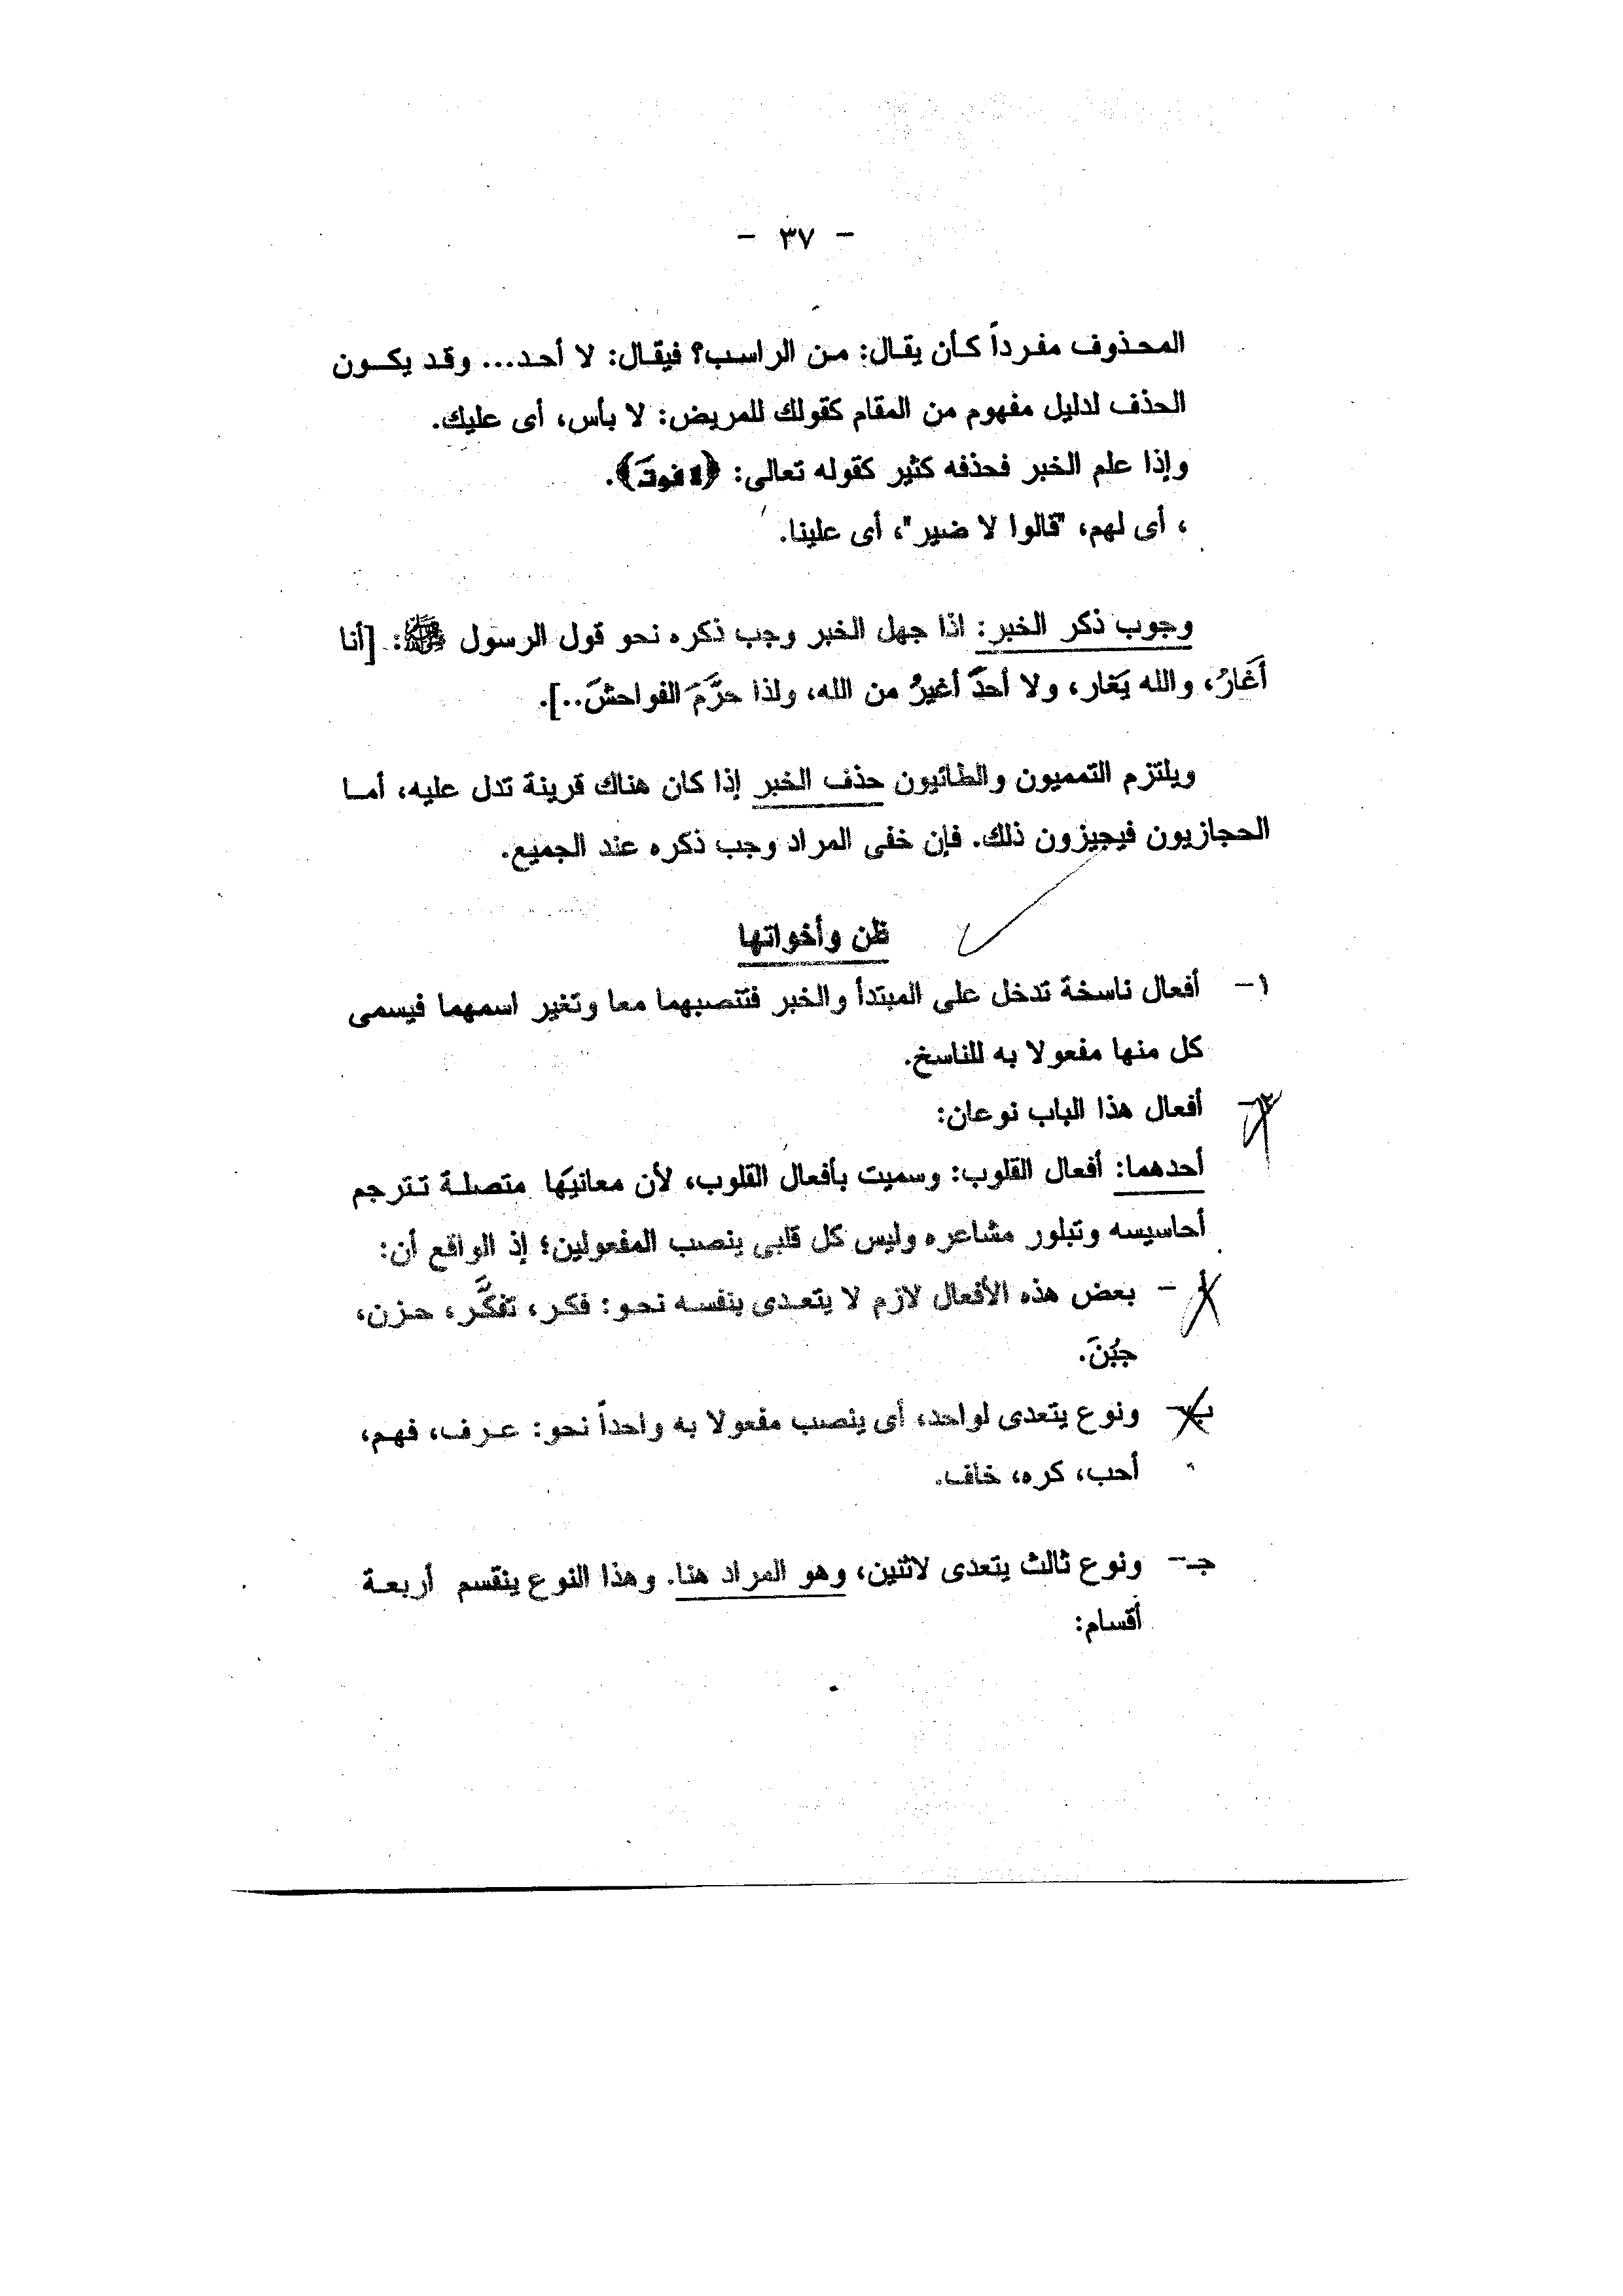 - ٣٧ -
المحذوف مفرداً كأن يقال: من الراسب؟ فيقال: لا أحد... وقد يكون
الحذف لدليل مفهوم من المقام كقولك للمريض: لا بأس، أى عليك.
وإذا علم الخبر فحذفه كثير كقوله تعالى: ﴿لا فوتَ﴾.
، أى لهم، "قالوا لا ضير"، أى علينا.
وجوب ذكر الخبر: اذا جهل الخبر وجب ذكره نحو قول الرسول ﷺ: [أنا
أَغَارُ، والله يَغار، ولا أحدَّ أغيرُ من الله، ولذا حرَّمَ الفواحشَ..].
ويلتزم التمميون والطائيون حذف الخبر إذا كان هناك قرينة تدل عليه، أما
الحجازيون فيجيزون ذلك. فإن خفى المراد وجب ذكره عند الجميع.
ظن وأخواتها
١- أفعال ناسخة تدخل على المبتدأ والخبر فتتصبهما معا وتغير اسمهما فيسمى
كل منها مفعولا به للناسخ.
٢- أفعال هذا الباب نوعان:
أحدهما: أفعال القلوب: وسميت بأفعال القلوب، لأن معانيَها متصلة تترجم
أحاسيسه وتبلور مشاعره وليس كل قلبى ينصب المفعولين؛ إذ الواقع أن:
أ - بعض هذه الأفعال لازم لا يتعدى بنفسه نحو: فكر، تفكَّر، حزن،
جبُنَ.
ب- ونوع يتعدى لواحد، أى ينصب مفعولا به واحداً نحو: عرف، فهم،
أحب، كره، خاف.
جـ- ونوع ثالث يتعدى لاثنين، وهو المراد هنا. وهذا النوع ينقسم أربعة
أقسام: